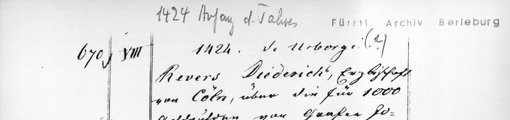 1424 Anfang d. Jahres
Fürstl. Archiv Berleburg
670, VIII 1424. S. Urbogi (?)
Revers Diederichs, Erzbischofs
von Cöln, über die für 1000
Goldgulden von Grafen Jo-